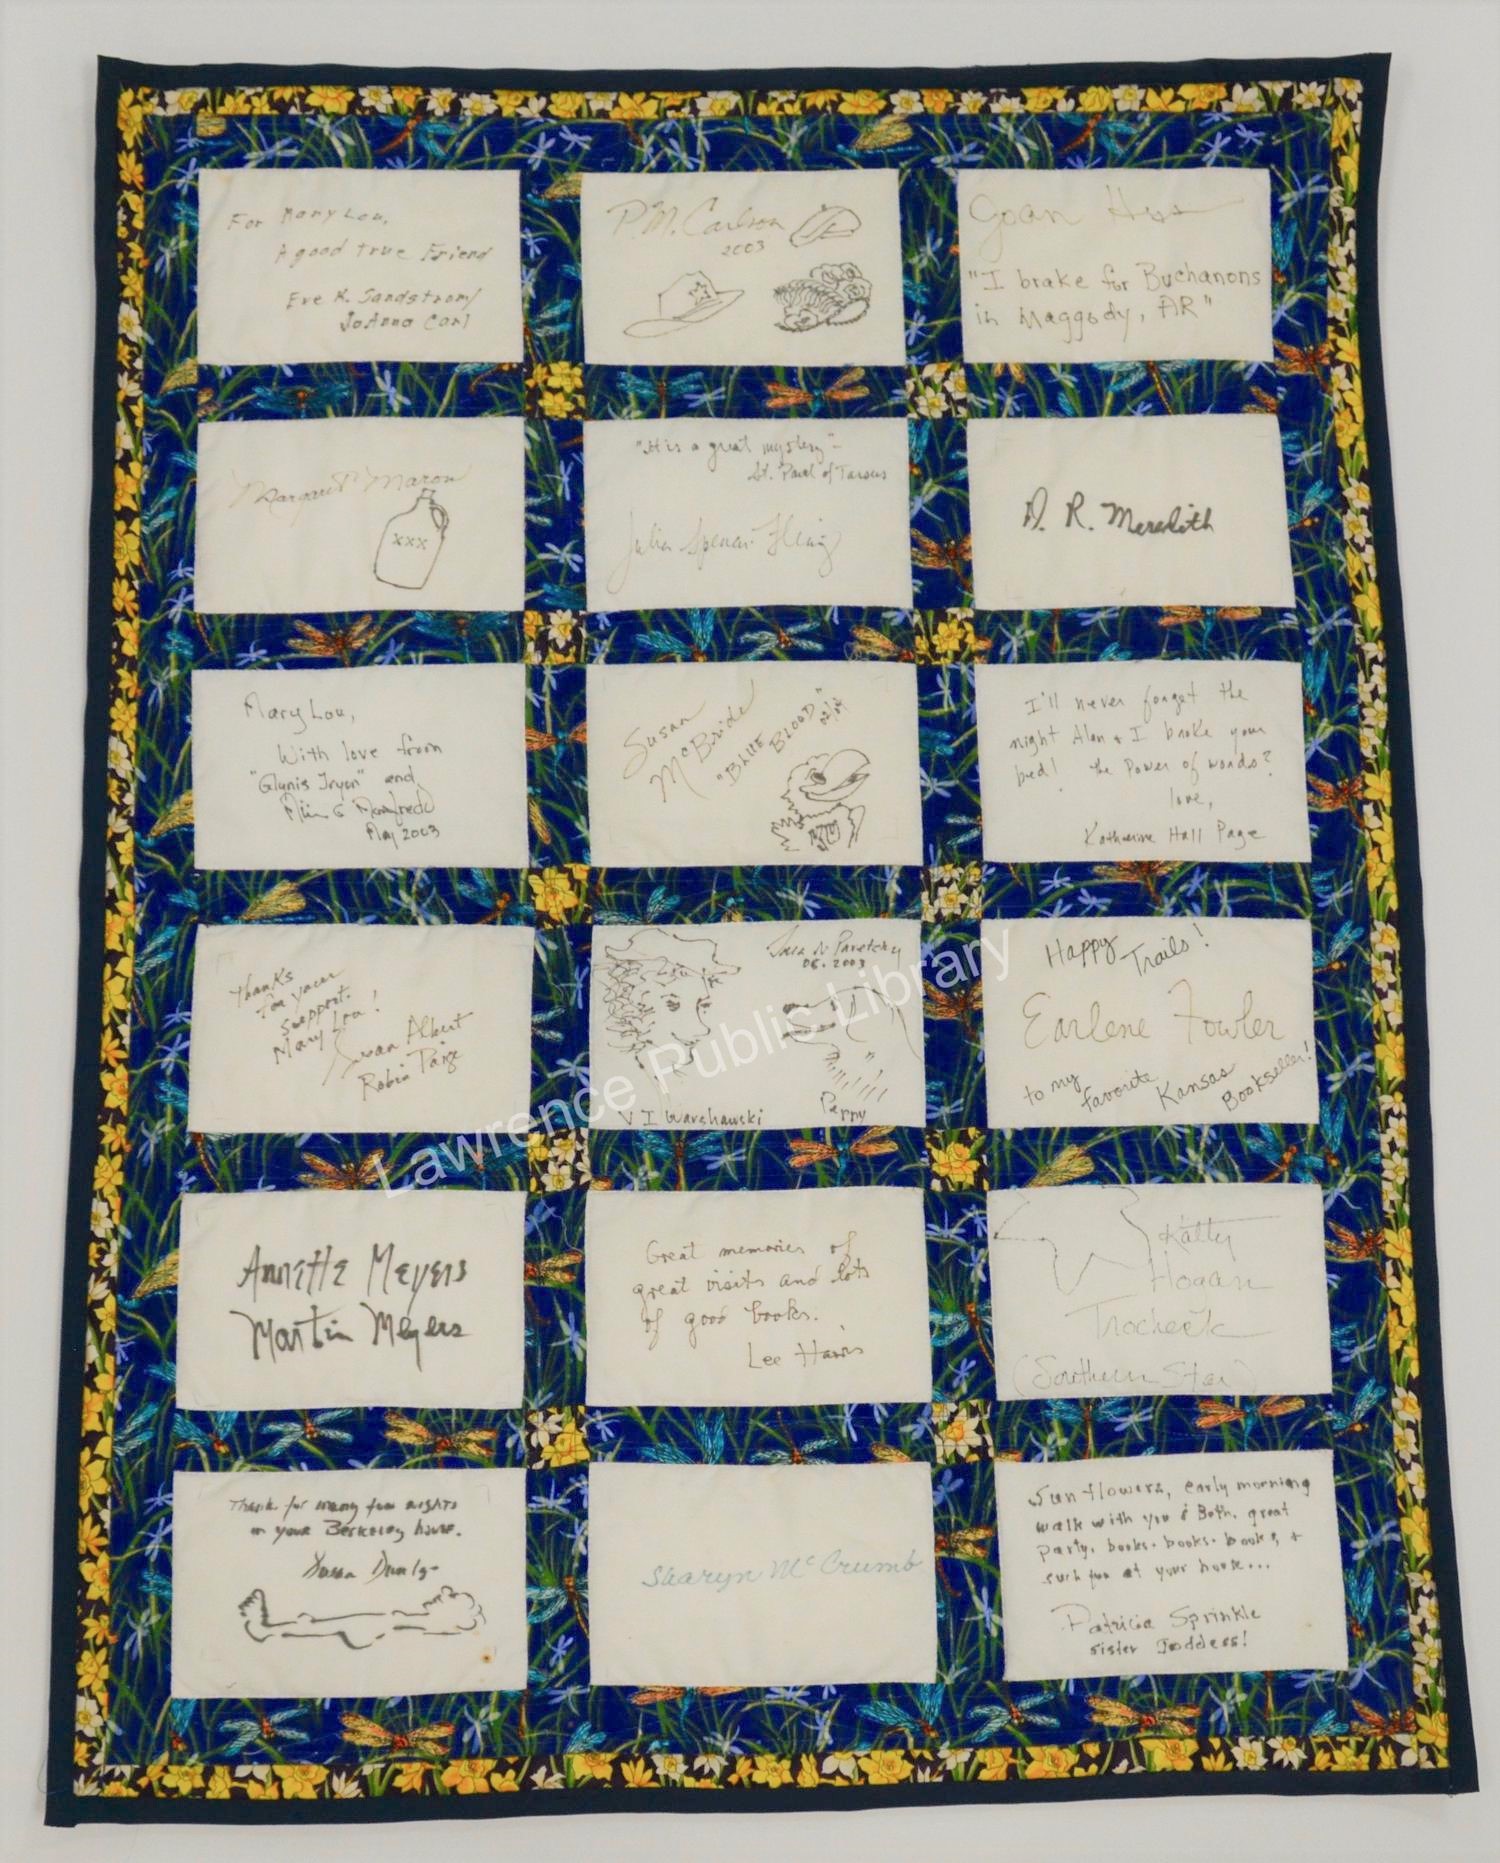 For Mary Lou,
A good true Friend
Eve K. Sandstrom/
JoAnna Carl
P.M. Carlson
2003
Joan Hess
"I brake for Buchanons
in Maggody, AR"
Margaret Maron
xxx
"It is a great mystery" -
St. Paul of Tarsus
Julia Spencer-Fleming
D. R. Meredith
Mary Lou,
With love from
"Glynis Tryon" and
May 2003
Susan
McBride
"BLUE BLOOD"
I'll never forget the
night Alan & I broke your
bed! the Power of words?
love,
Katherine Hall Page
Thanks
for your
support.
Mary Lou!
Susan Albert
Robin Paige
Sara N Paretsky
06.2003
V I Warshawski
Peppy
Happy
Trails!
Earlene Fowler
to my
favorite
Kansas
Bookseller!
Annette Meyers
Martin Meyers
Great memories of
great visits and lots
of good books.
Lee Harris
Kathy
Hogan
Trocheck
(Southern Star)
Thanks for many fun nights
in your Berkeley house.
Susan Dunlap
Sharyn McCrumb
Sunflowers, early morning
walk with you & Beth, great
party, books. books. books, +
such fun at your house...
Patricia Sprinkle
Sister Goddess!
Lawrence Public Library